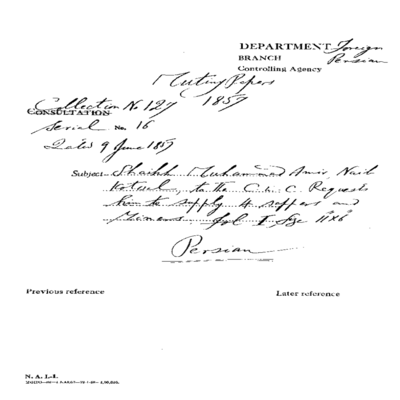 DEPARTMENT Foreign
BRANCH Persian
Controlling Agency
Mutiny Papers
Collection No 127 1857
CONSULTATION
Serial No. 16
Dated 9 June 1857
Subject Shaikh Muhammad Amir, Naib
Kotwal, to the C. in C. Requests
him to supply 4 sappers and
Miners. fol I Size
Persian
Previous reference Later reference
N. A. I.-I.